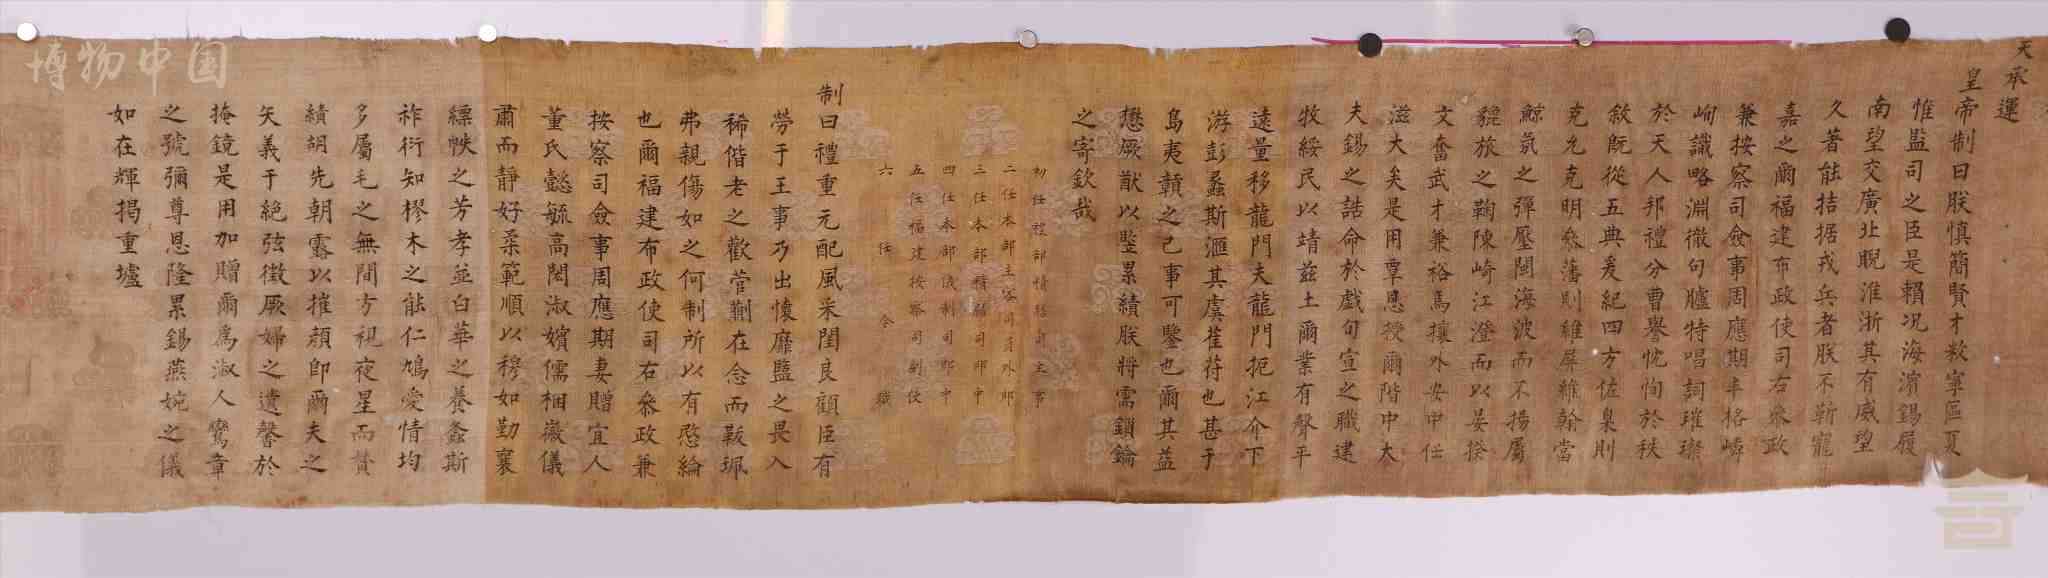 天承運
皇帝制曰朕慎簡賢才敉寧區夏
惟監司之臣是賴况海濱錫履
南望交廣北睨淮浙其有威望
久著能拮据戎兵者朕不靳寵
嘉之爾福建布政使司右叅政
兼按察司僉事周應期丰格嶙
峋識略淵徹句臚特唱詞璀璨
於天人邦禮分曹譽忱恂於秩
敘旣從五典爰紀四方佐臬則
克允克明叅藩則維屏維翰當
鯨氛之彈壓閩海波而不揚屬
貔旅之鞠陳崎江澄而以晏揆
文奮武才兼裕焉攘外安中任
滋大矣是用覃恩授爾階中大
夫錫之誥命於戲旬宣之職建
牧綏民以靖茲土爾業有聲平
遠量移龍門夫龍門扼江介下
游彭蠡斯滙其虞萑苻也甚于
島夷顰之已事可鑒也爾其益
懋厥猷以堅累績朕將需鎖鑰
之寄欽哉
初任禮部精膳司主事
二任本部主客司員外郎
三任本部精膳司郎中
四任本部儀制司郎中
五任福建按察司副使
六任今職
制曰禮重元配風采閨良顧臣有
勞于王事乃出懷靡盬之畏入
稀偕老之歡菅蒯在念而鞶珮
弗親傷如之何制所以有愍綸
也爾福建布政使司右叅政兼
按察司僉事周應期妻贈宜人
董氏懿毓高閎淑嬪儒梱嶶儀
肅而靜好柔範順以穆如勤襄
縹帙之芳孝並白華之養螽斯
祚衍知樛木之能仁鳲愛情均
多屬毛之無間方視夜星而贊
績胡先朝露以摧顏即爾夫之
矢義于絶弦徵厥婦之遺馨於
掩鏡是用加贈爾爲淑人鸞章
之號彌尊恩隆累錫燕婉之儀
如在輝揭重墟
博物中国